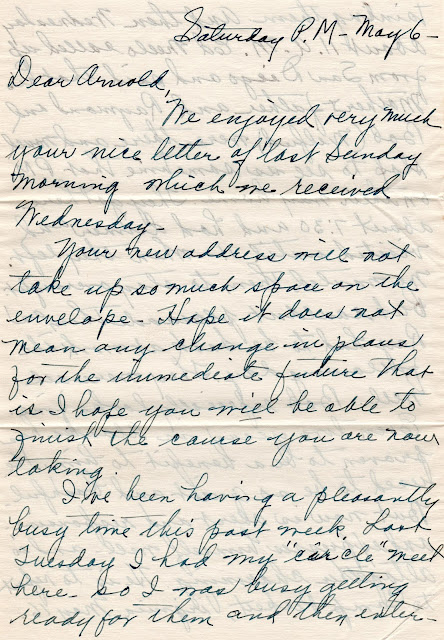 Saturday P.M - May 6 -
Dear Arnold,
We enjoyed very much
your nice letter of last Sunday
morning which we received
Wednesday -
Your new address will not
take up so much space on the
envelope - Hope it does not
mean any change in plans
for the immediate future that
is I hope you will be able to
finish the course you are now
taking.
I've been having a pleasantly
busy time this past week. Last
Tuesday I had my "circle" meet
here - so I was busy getting
ready for them and then enter-